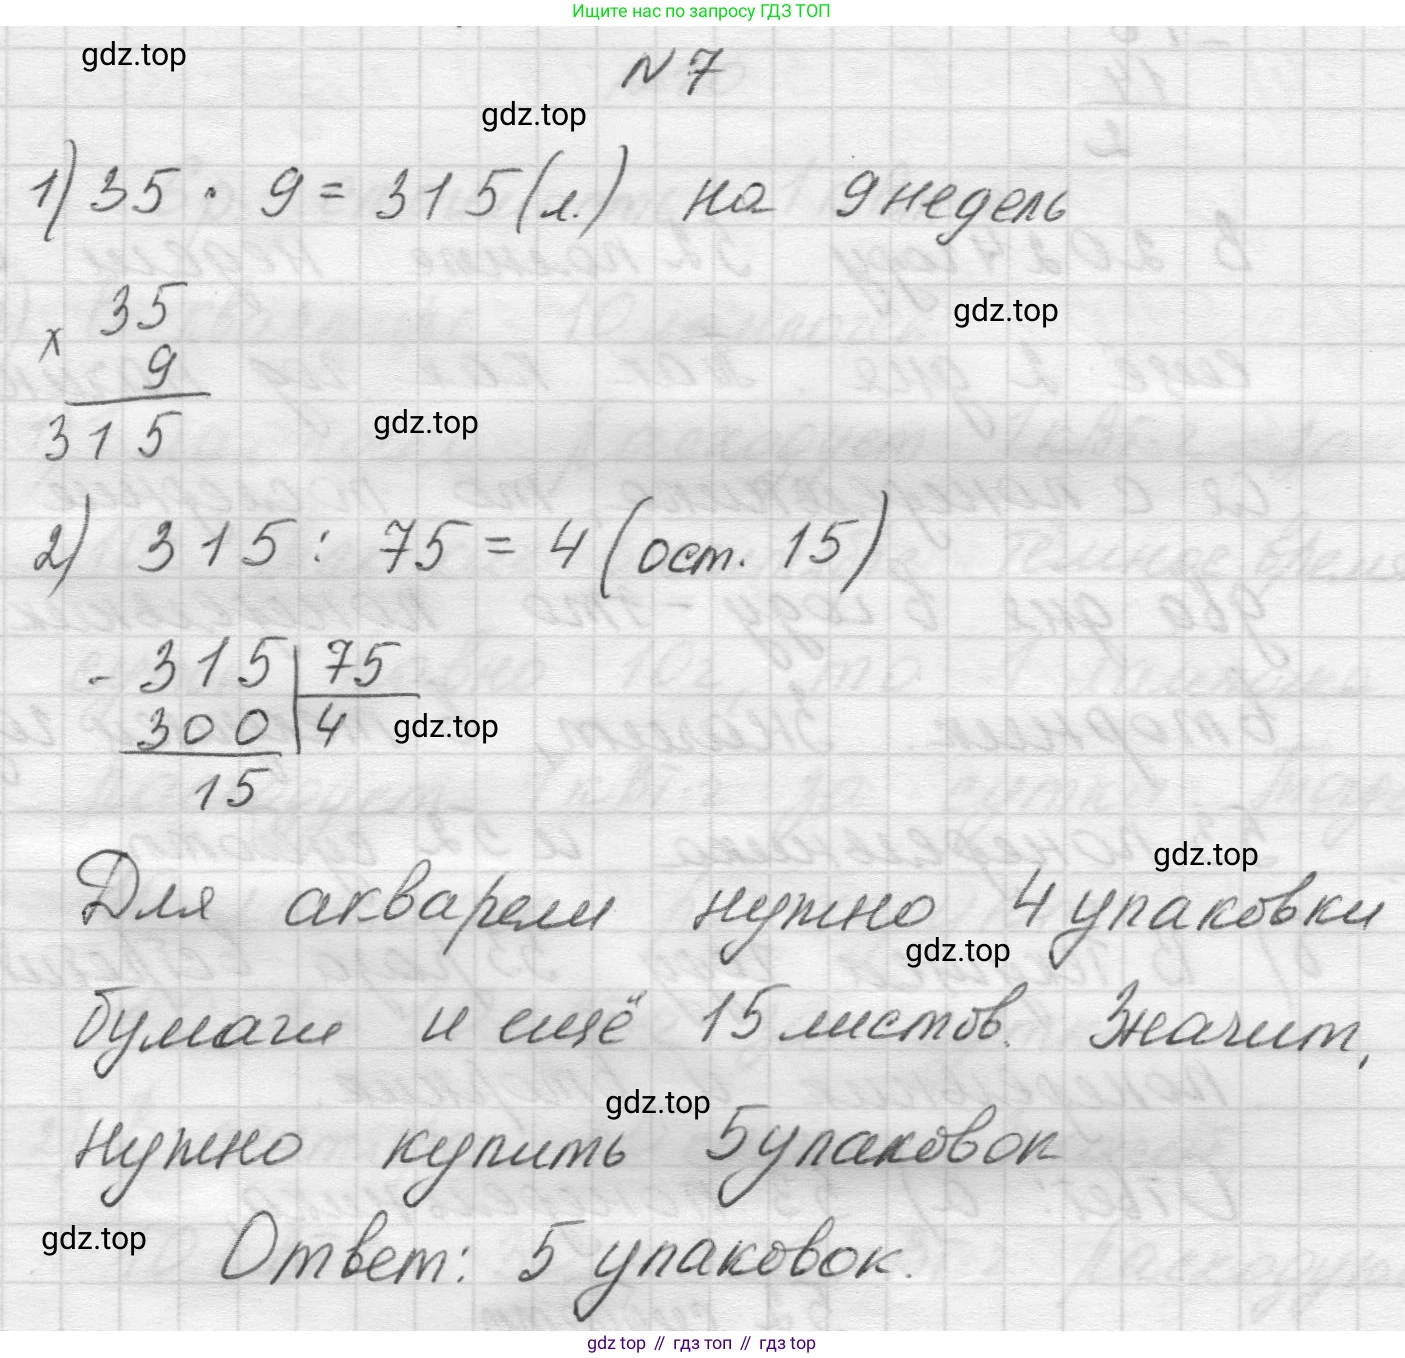 Ищите нас по запросу ГДЗ ТОП
gdz.top
N 7
gdz.top
1) 35 · 9 = 315 (л.) на 9 недель
gdz.top
35
x 9
315
gdz.top
2) 315 : 75 = 4 (ост. 15)
- 315 | 75
300 | 4
gdz.top
15
gdz.top
Для акварели нужно 4 упаковки
gdz.top
бумаги и ещё 15 листов. Значит,
gdz.top
нужно купить 5 упаковок
gdz.top
Ответ: 5 упаковок.
gdz top // гдз топ // гдз top